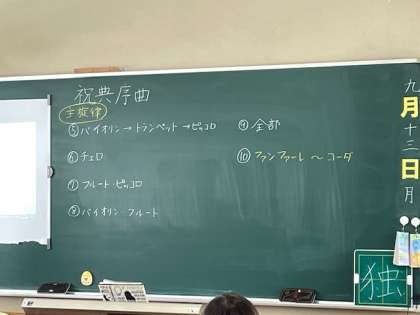 祝典序曲
主旋律
⑤バイオリン→トランペット→ピッコロ
⑥チェロ
⑦フルート・ピッコロ
⑧バイオリン・フルート
⑨全部
⑩ファンファーレ～コーダ
九月十三日月
独